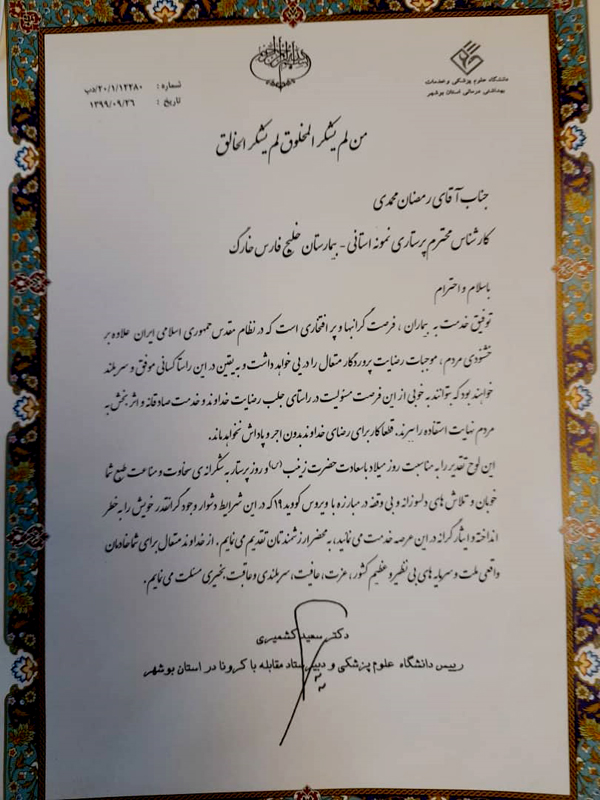 دانشگاه علوم پزشکی و خدمات
بهداشتی درمانی استان بوشهر
شماره : ۲۰/۱/۱۲۲۸۰/دپ
تاریخ : ۱۳۹۹/۰۹/۲۶
من لم یشکر المخلوق لم یشکر الخالق
جناب آقای رمضان محمدی
کارشناس محترم پرستاری نمونه استانی - بیمارستان خلیج فارس خارگ
باسلام و احترام
توفیق خدمت به بیماران ، فرصت گرانبها و پر افتخاری است که در نظام مقدس جمهوری اسلامی ایران علاوه بر
خشنودی مردم ، موجبات رضایت پروردگار متعال را در پی خواهد داشت و به یقین در این راستا کسانی موفق و سربلند
خواهند بود که بتوانند به خوبی از این فرصت مسئولیت در راستای جلب رضایت خداوند و خدمت صادقانه و اثربخش به
مردم نهایت استفاده را ببرند. قطعا کار برای رضای خداوند بدون اجر و پاداش نخواهد ماند.
این لوح تقدیر را به مناسبت روز میلاد باسعادت حضرت زینب (س) و روز پرستار به شکرانه ی سخاوت و مناعت طبع شما
خوبان و تلاش های دلسوزانه و بی وقفه در مبارزه با ویروس کووید ۱۹ که در این شرایط دشوار وجود گرانقدر خویش را به خطر
انداخته و ایثارگرانه در این عرصه خدمت می نمائید، به محضر ارزشمندتان تقدیم می نمایم. از خداوند متعال برای شما خادمان
واقعی ملت و سرمایه های بی نظیر و عظیم کشور ، عزت، عافیت، سربلندی و عاقبت بخیری مسئلت می نمایم.
دکتر سعید کشمیری
رییس دانشگاه علوم پزشکی و دبیر ستاد مقابله با کرونا در استان بوشهر